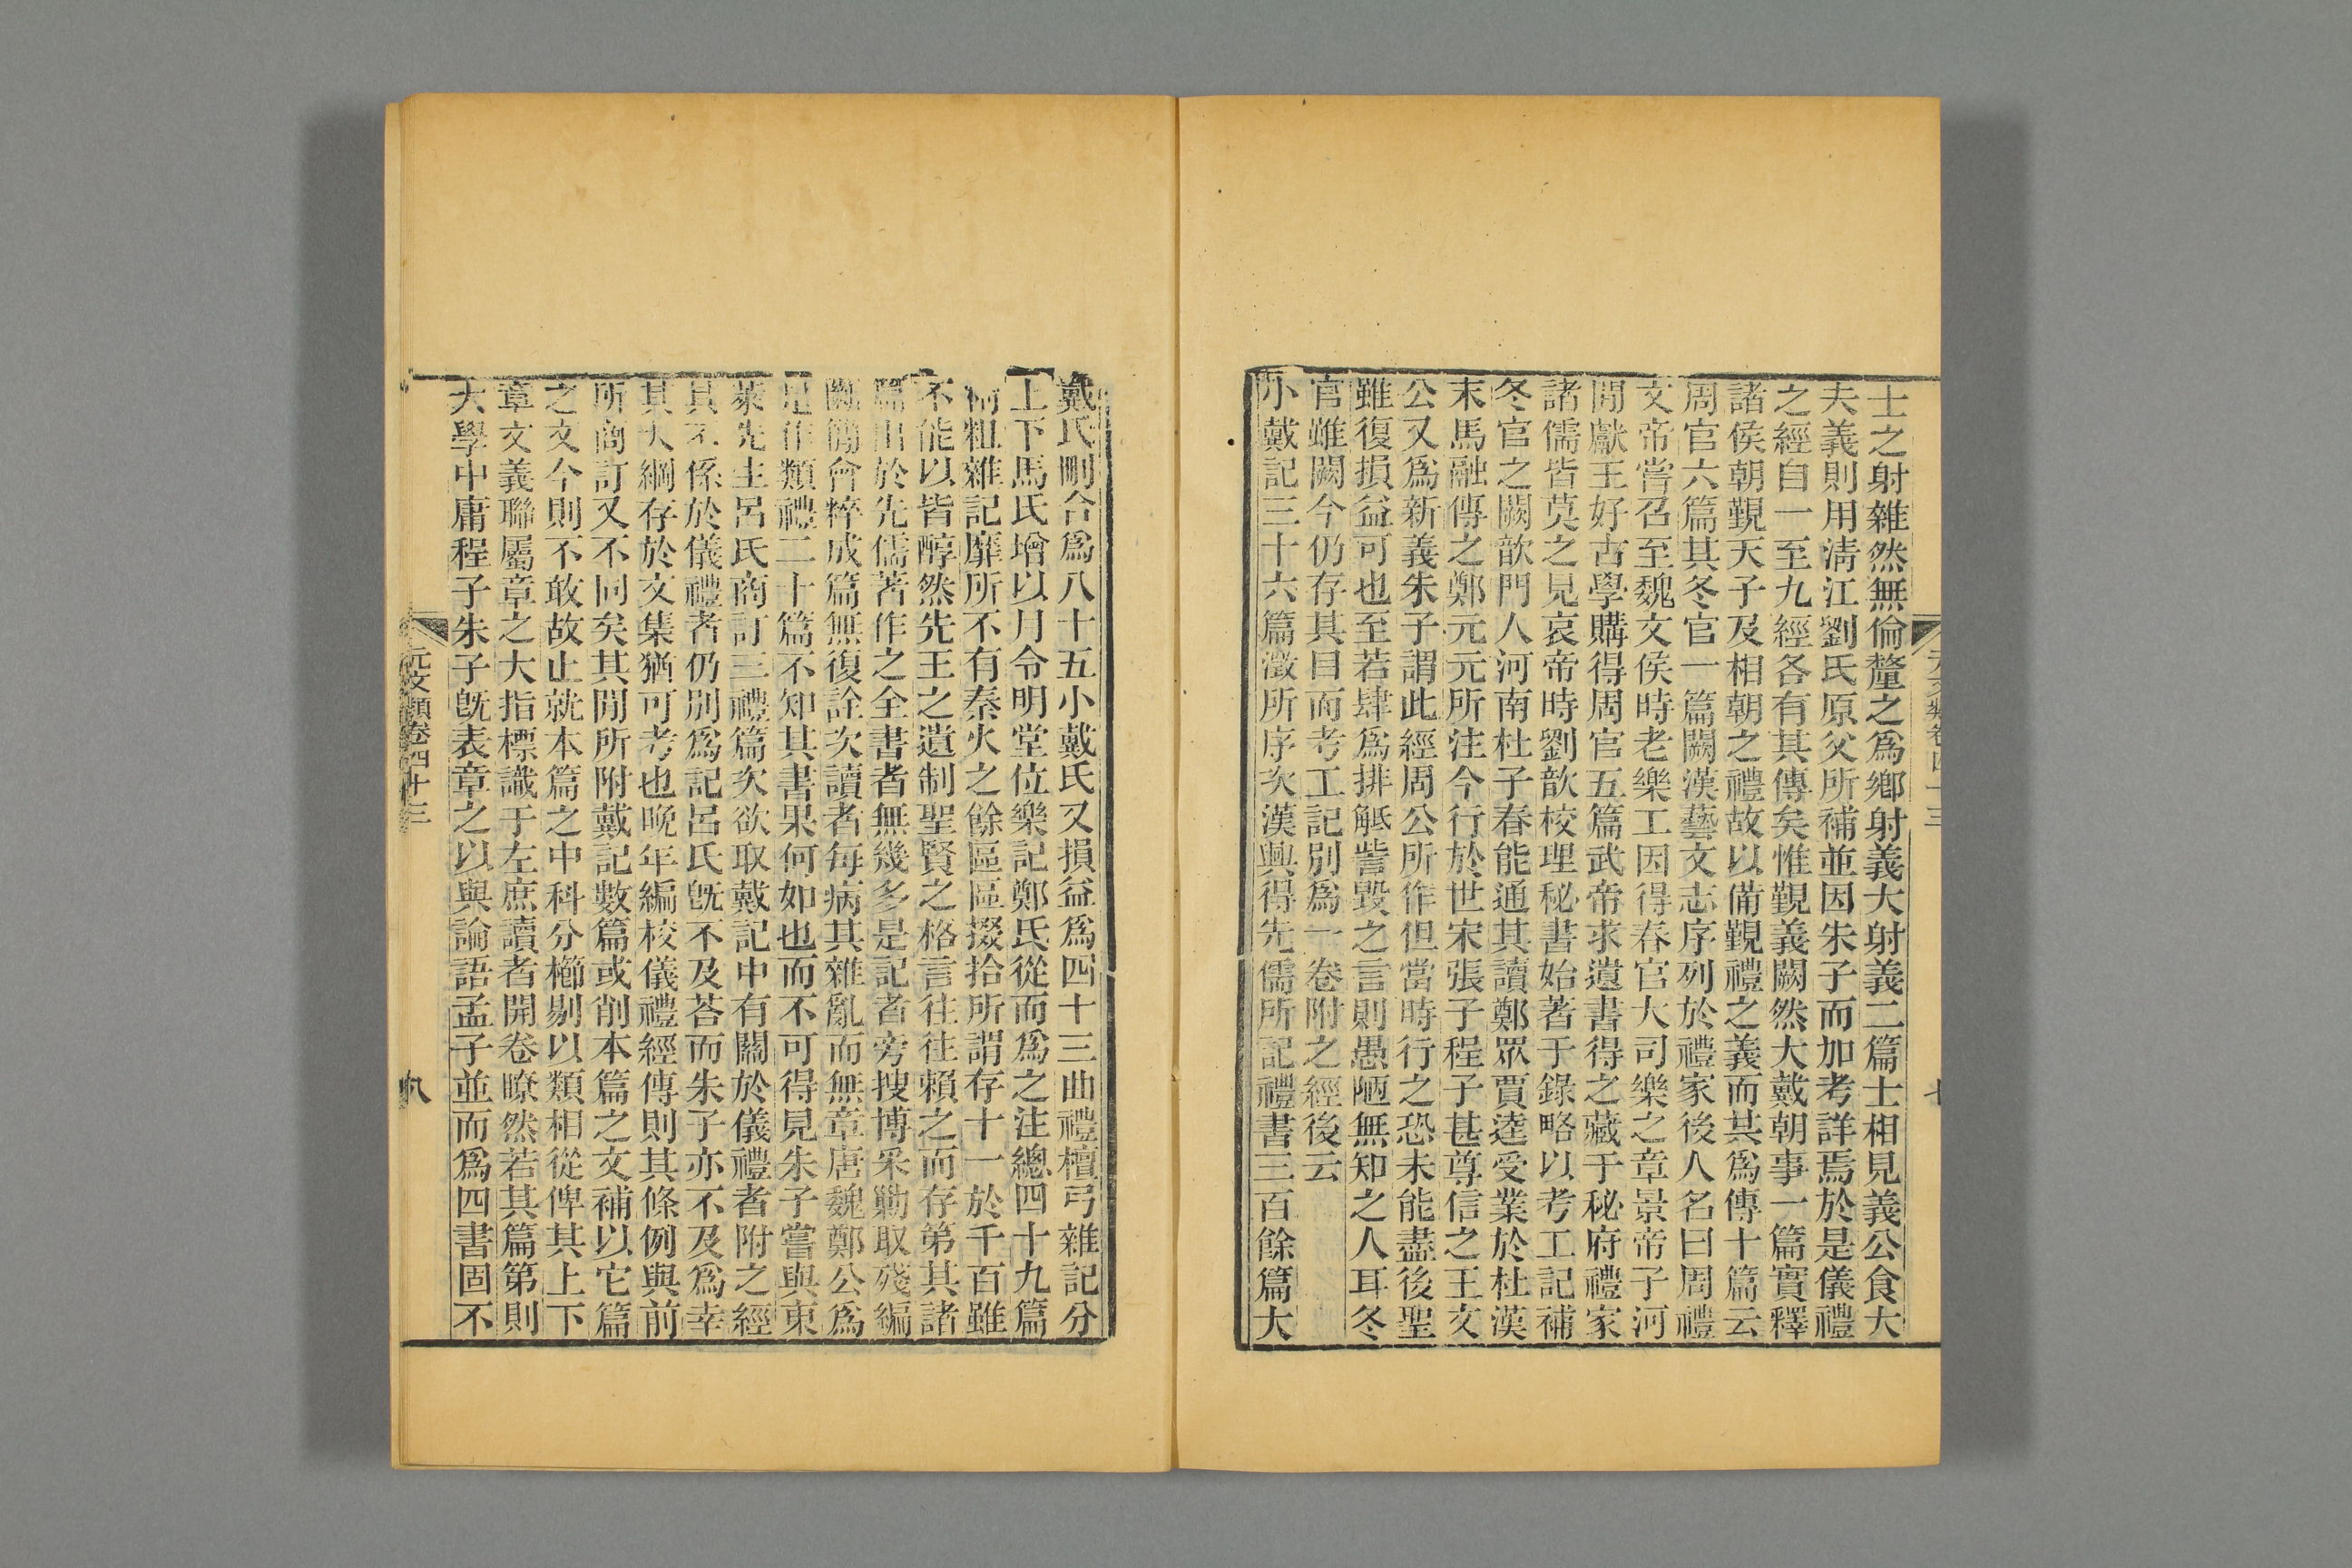 士之射雜然無倫釐之爲鄉射義大射義二篇士相見義公食大
夫義則用淸江劉氏原父所補並因朱子而加考詳焉於是儀禮
之經自一至九經各有其傳矣惟覲義闕然大戴朝事一篇實釋
諸侯朝覲天子及相朝之禮故以備覲禮之義而其爲傳十篇云
周官六篇其冬官一篇闕漢藝文志序列於禮家後人名曰周禮
文帝嘗召至魏文侯時老樂工因得春官大司樂之章景帝子河
閒獻王好古學購得周官五篇武帝求遺書得之藏于秘府禮家
諸儒皆莫之見哀帝時劉歆校理秘書始著于錄略以考工記補
冬官之闕歆門人河南杜子春能通其讀鄭眾賈逵受業於杜漢
末馬融傳之鄭元元所注今行於世宋張子程子甚尊信之王文
公又爲新義朱子謂此經周公所作但當時行之恐未能盡後聖
雖復損益可也至若肆爲排觝訾毀之言則愚陋無知之人耳冬
官雖闕今仍存其目而考工記別爲一卷附之經後云
小戴記三十六篇澂所序次漢興得先儒所記禮書三百餘篇大
戴氏刪合爲八十五小戴氏又損益爲四十三曲禮檀弓雜記分
上下馬氏增以月令明堂位樂記鄭氏從而爲之注總四十九篇
精粗雜記靡所不有秦火之餘區區掇拾所謂存十一於千百雖
不能以皆醇然先王之遺制聖賢之格言往往賴之而存第其諸
篇出於先儒著作之全書者無幾多是記者旁搜博采勦取殘編
斷簡會稡成篇無復詮次讀者每病其雜亂而無章唐魏鄭公爲
是作類禮二十篇不知其書果何如也而不可得見朱子嘗與東
萊先生呂氏商訂三禮篇次欲取戴記中有關於儀禮者附之經
其不係於儀禮者仍別爲記呂氏旣不及荅而朱子亦不及爲幸
其大綱存於文集猶可考也晚年編校儀禮經傳則其條例與前
所商訂又不同矣其閒所附戴記數篇或削本篇之文補以它篇
之文今則不敢故止就本篇之中科分櫛剔以類相從俾其上下
章文義聯屬章之大指標識于左庶讀者開卷瞭然若其篇第則
大學中庸程子朱子旣表章之以與論語孟子並而爲四書固不
元文類卷四十三
八